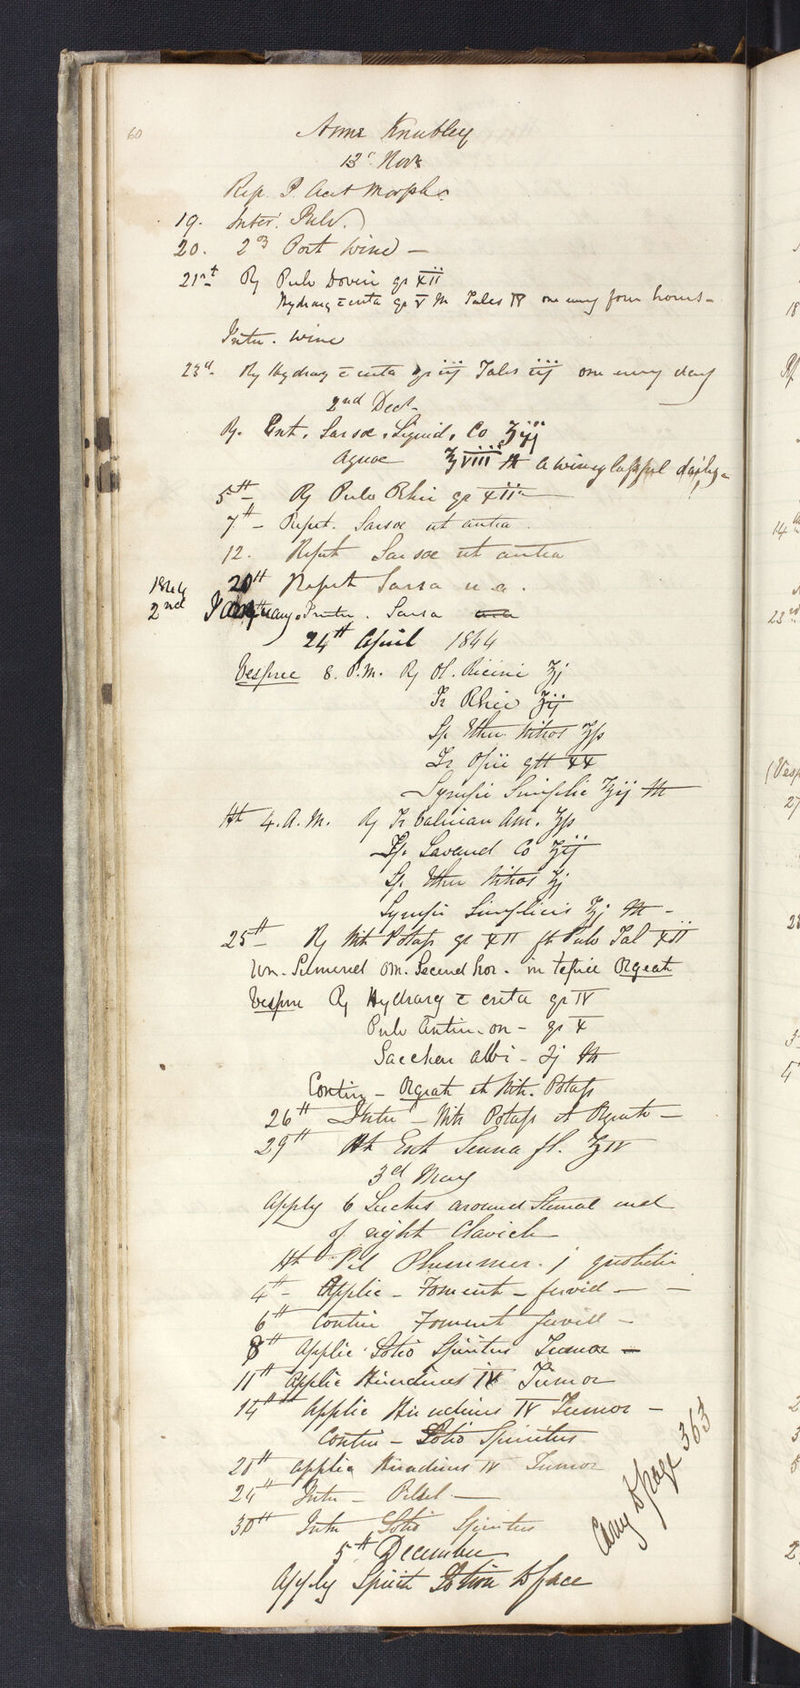 60
Anne Knubley
13th Novr
Rep. P. Acet Morph.
19. Inter. Pulv.
20. 2 ℥ Port Wine —
21st ℞ Pulv Doveri gr XII
Hydrarg c creta gr V M Pules IV one every four hours -
Inter. Wine
23d ℞ Hydrarg c creta gr iij Tales iij one every day
2nd Decr
℞. Ext. Sarsæ. Liquid. Co ℥iij
Aquæ ℥VIII M A wineglassful daily
5th ℞ Pulv Rhei gr XII
7th - Repet. Sarsæ ut antea
12. Repet Sarsæ ut antea
20th Repet Sarsa u. a.
1844
2nd January. Inter. Sarsa
24th April 1844
Vespere 8. P.M. ℞ Ol. Ricini ℥j
Tr Rhei ʒij
Sp. Ether Nitros ʒſs
Tr Opii gtt XX
Syrupi Simplic ʒij M
Ht 4. A. M. ℞ Tr Valerian Am. ʒſs
Sp. Lavend Co ʒij
Sp. Ether Nitros ʒj
Syrupi Simplicis ʒj M -
25th ℞ Nit Potaſs gr XII ft Pulv Tal XII
Un. Sumend om. Secund hor. in tepid Orgeat
Vespere ℞ Hydrarg c creta gr IV
Pulv Antimon - gr X
Sacchar albi - ℈j M
Contin - Orgeat et Nit. Potaſs
26th Inter - Nit Potaſs et Orgeate —
29th Ht Ext Senna fl. ʒIV
3d May
Apply 6 Leeches around Sternal end
of right Clavicle
Ht Pil Plummer. j quotidie
4th - Applic - Foment - fervid —
6th Contin Foment fervid -
8th Applic Lotio Spiritus Tumor —
11th Applic Hirudines IV Tumor
14th Applic Hirudines IV Tumor —
Contin - Lotio Spiritus
20th Applic Hirudines IV Tumor
24th Inter —
30th Inter Lotio Spiritus
5th December
Apply Spirit Lotion to face
Carry to page 363